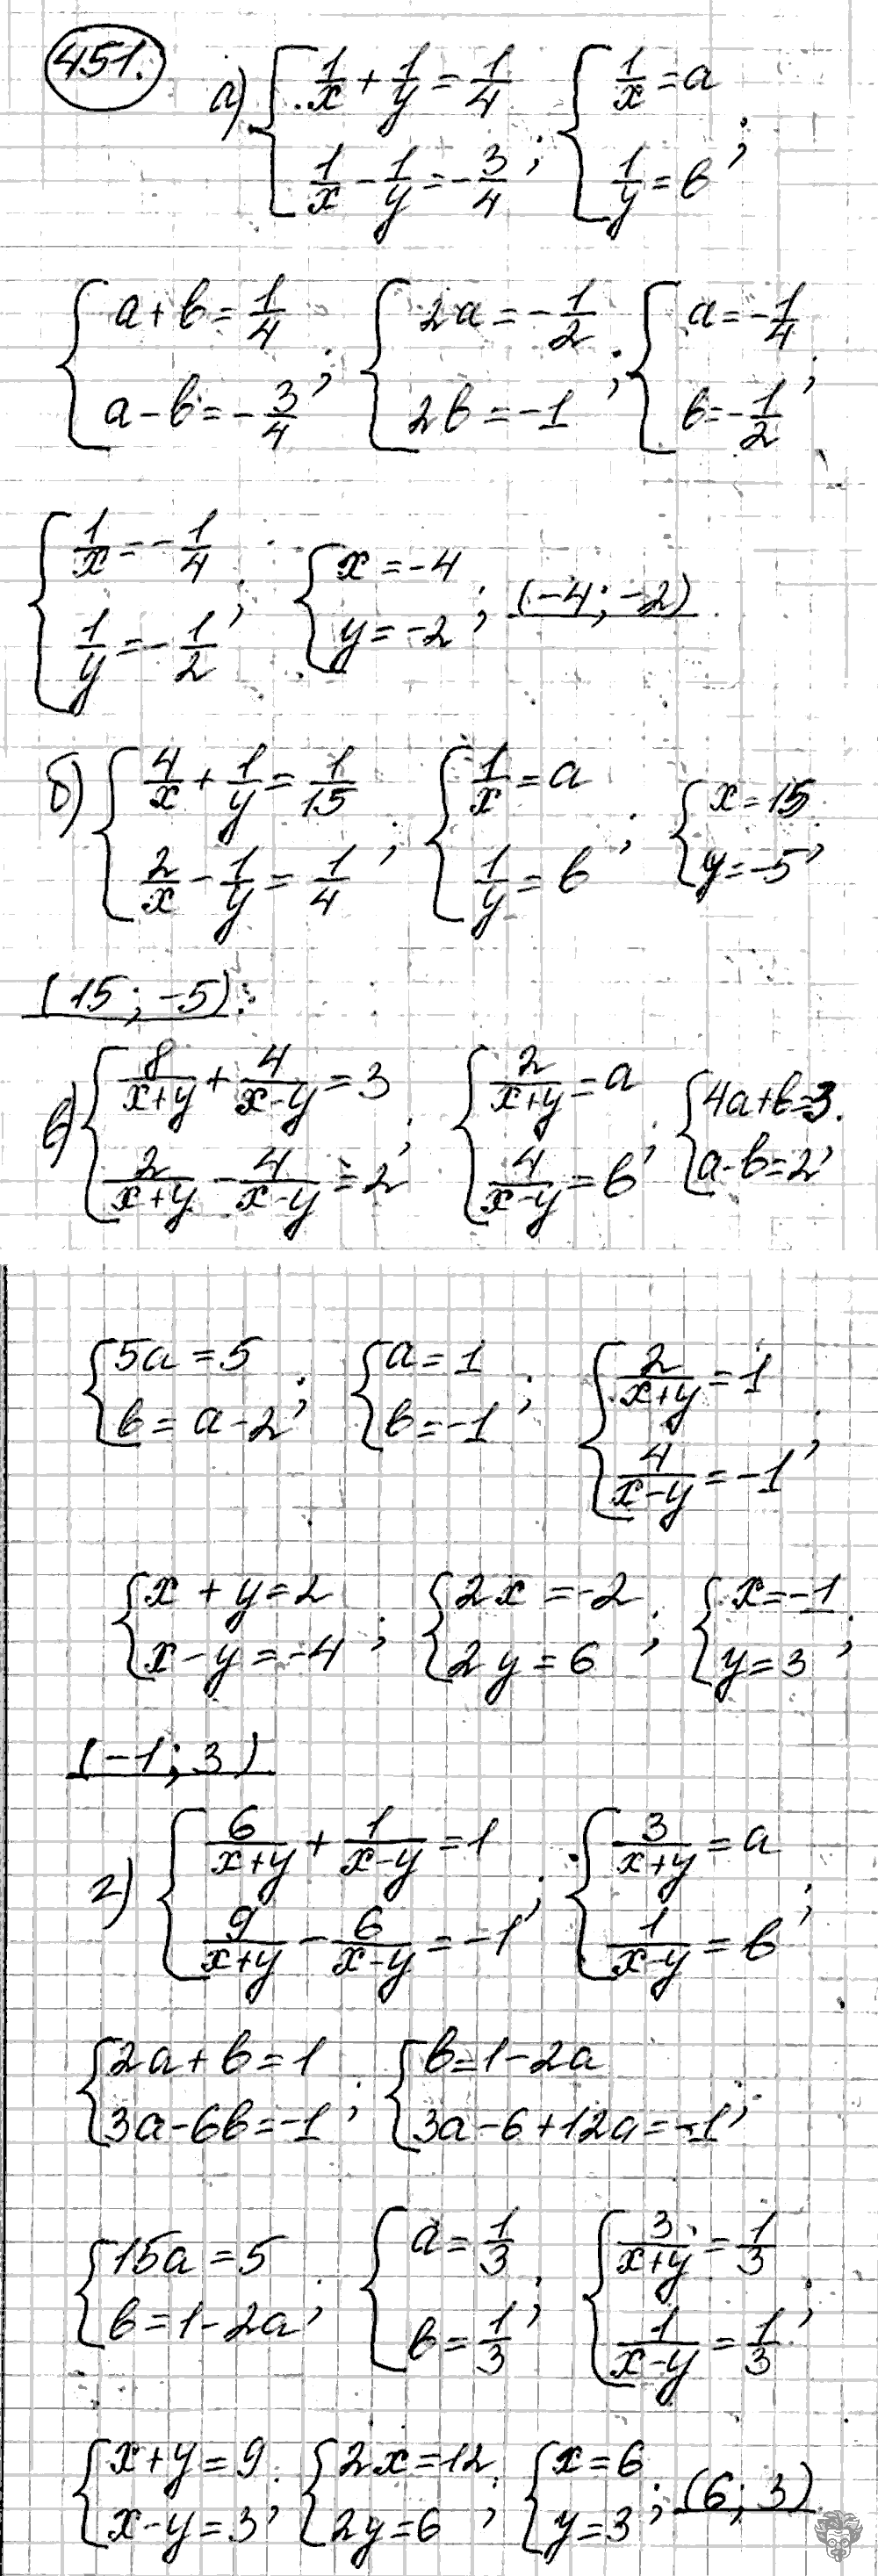 451.
а) { 1/x + 1/y = 1/4 ; 1/x - 1/y = -3/4 ; { 1/x = a ; 1/y = b ;
{ a + b = 1/4 ; a - b = -3/4 ; { 2a = -1/2 ; 2b = -1 ; { a = -1/4 ; b = -1/2 ;
{ 1/x = -1/4 ; 1/y = -1/2 ; { x = -4 ; y = -2 ; (-4; -2)
б) { 4/x + 1/y = 1/15 ; 2/x - 1/y = 1/4 ; { 1/x = a ; 1/y = b ; { x = 15 ; y = -5 ;
(15; -5)
в) { 8/(x+y) + 4/(x-y) = 3 ; 2/(x+y) - 4/(x-y) = 2 ; { 2/(x+y) = a ; 4/(x-y) = b ; { 4a + b = 3 ; a - b = 2 ;
{ 5a = 5 ; b = a - 2 ; { a = 1 ; b = -1 ; { 2/(x+y) = 1 ; 4/(x-y) = -1 ;
{ x + y = 2 ; x - y = -4 ; { 2x = -2 ; 2y = 6 ; { x = -1 ; y = 3 ;
(-1; 3)
г) { 6/(x+y) + 1/(x-y) = 1 ; 9/(x+y) - 6/(x-y) = -1 ; { 3/(x+y) = a ; 1/(x-y) = b ;
{ 2a + b = 1 ; 3a - 6b = -1 ; { b = 1 - 2a ; 3a - 6 + 12a = -1 ;
{ 15a = 5 ; b = 1 - 2a ; { a = 1/3 ; b = 1/3 ; { 3/(x+y) = 1/3 ; 1/(x-y) = 1/3 ;
{ x + y = 9 ; x - y = 3 ; { 2x = 12 ; 2y = 6 ; { x = 6 ; y = 3 ; (6; 3)